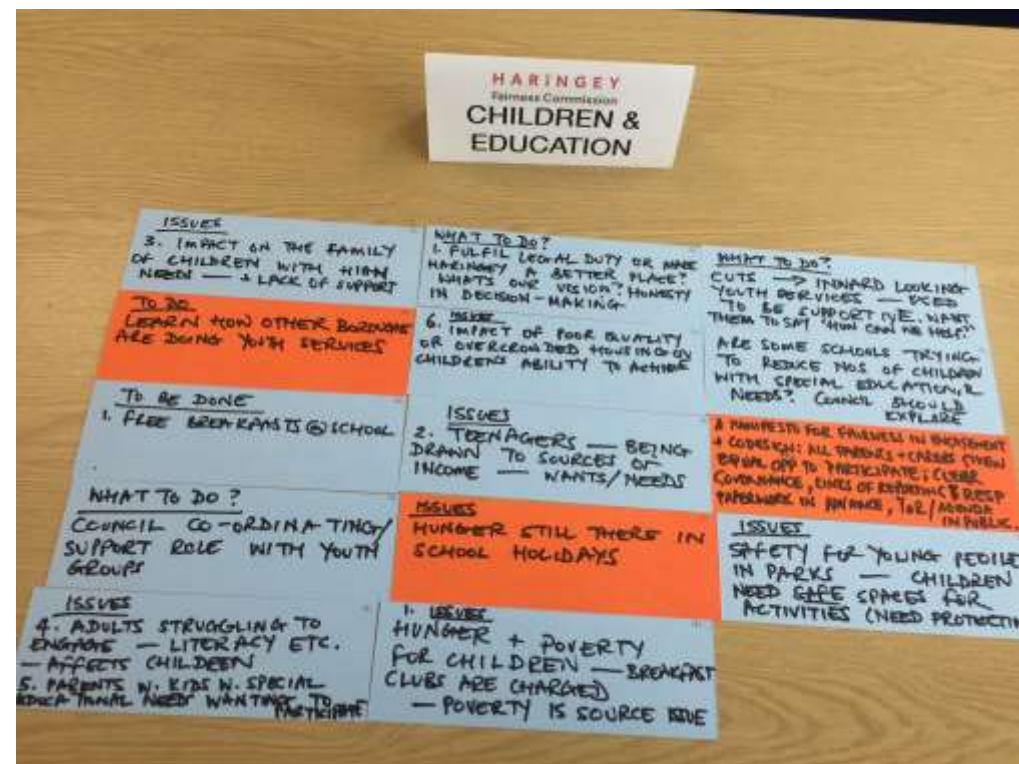 HARINGEY
Fairness Commission
CHILDREN &
EDUCATION
ISSUES
3. IMPACT ON THE FAMILY
OF CHILDREN WITH HIGH
NEEDS — + LACK OF SUPPORT
TO DO
LEARN HOW OTHER BOROUGHS
ARE DOING YOUTH SERVICES
TO BE DONE
1. FREE BREAKFASTS @ SCHOOL
WHAT TO DO?
COUNCIL CO-ORDINATING/
SUPPORT ROLE WITH YOUTH
GROUPS
ISSUES
4. ADULTS STRUGGLING TO
ENGAGE — LITERACY ETC.
— AFFECTS CHILDREN
5. PARENTS W. KIDS W. SPECIAL
EDUCATIONAL NEEDS WANTING TO
PARTICIPATE
WHAT TO DO?
1. FULFIL LEGAL DUTY OR MAKE
HARINGEY A BETTER PLACE?
WHATS OUR VISION? HONESTY
IN DECISION-MAKING
6. ISSUE
IMPACT OF POOR QUALITY
OR OVERCROWDED HOUSING ON
CHILDRENS ABILITY TO ACHIEVE
ISSUES
2. TEENAGERS — BEING
DRAWN TO SOURCES OF
INCOME — WANTS/NEEDS
ISSUES
HUNGER STILL THERE IN
SCHOOL HOLIDAYS
1. ISSUES
HUNGER + POVERTY
FOR CHILDREN — BREAKFAST
CLUBS ARE CHARGED
— POVERTY IS SOURCE ISSUE
WHAT TO DO?
CUTS → INWARD LOOKING
YOUTH SERVICES — USED
TO BE SUPPORTIVE. WANT
THEM TO SAY "HOW CAN WE HELP?"
ARE SOME SCHOOLS TRYING
TO REDUCE NOS. OF CHILDREN
WITH SPECIAL EDUCATION
NEEDS? COUNCIL SHOULD
EXPLORE
A MANIFESTO FOR FAIRNESS IN ENGAGEMENT
+ CODESIGN: ALL PARENTS + CARERS GIVEN
EQUAL OPP TO PARTICIPATE; CLEAR
GOVERNANCE, LINES OF REPORTING & RESP
PAPERWORK IN ADVANCE, TOR/AGENDA
IN PUBLIC.
ISSUES
SAFETY FOR YOUNG PEOPLE
IN PARKS — CHILDREN
NEED SAFE SPACES FOR
ACTIVITIES (NEED